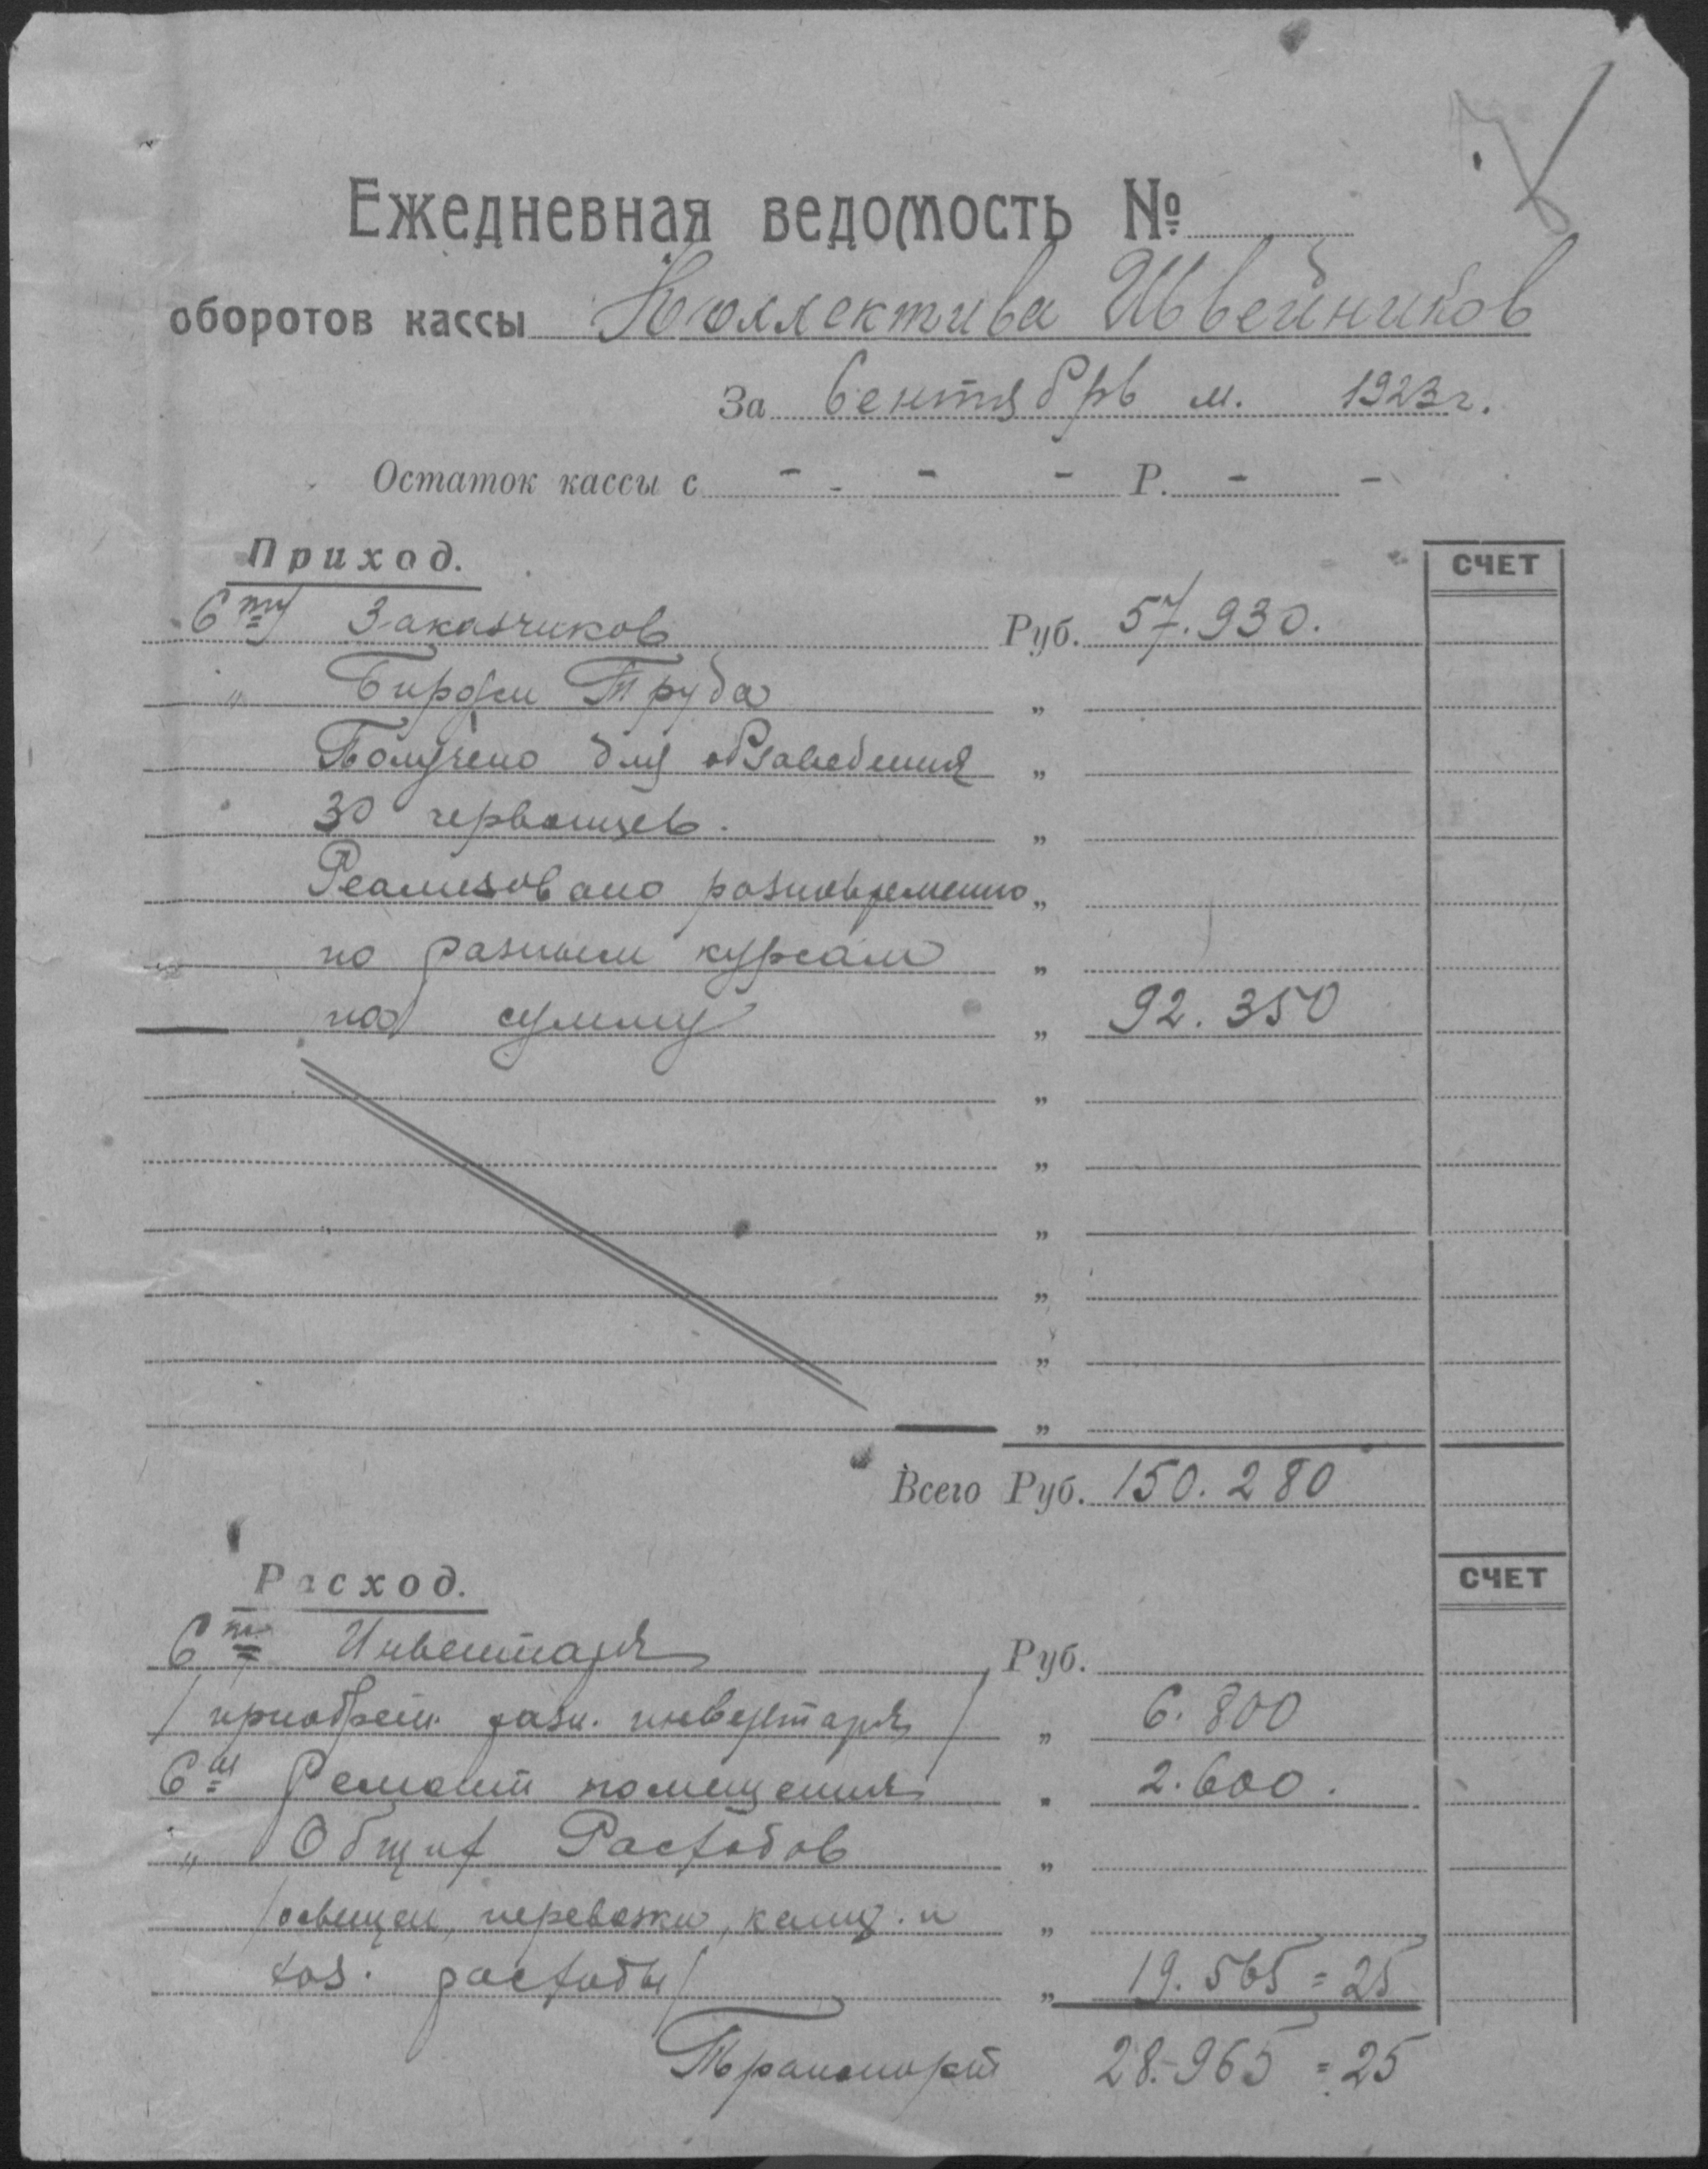 Ежедневная ведомость №
оборотов кассы Коллектива Швейников
За Сентябрь м. 1923 г.
Остаток кассы с - - - Р. - -
Приход.
СЧЕТ
Сту Заказчиков Руб. 57.930.
„ Биржи Труда „
Получено для обзаведения „
30 червонцев. „
Реализовано разновременно „
по разным курсам „
на сумму „ 92.350
„
„
„
„
„
„
Всего Руб. 150.280
Расход.
СЧЕТ
Ст Инвентаря Руб.
/приобретен. разн. инвентаря/ „ 6.800
Ст Ремонт помещения „ 2.600.
„ Общих Расходов „
/освещен, перевозки, канц. и „
хоз. расходы/ „ 19.565 = 25
Транспорт 28.965 = 25